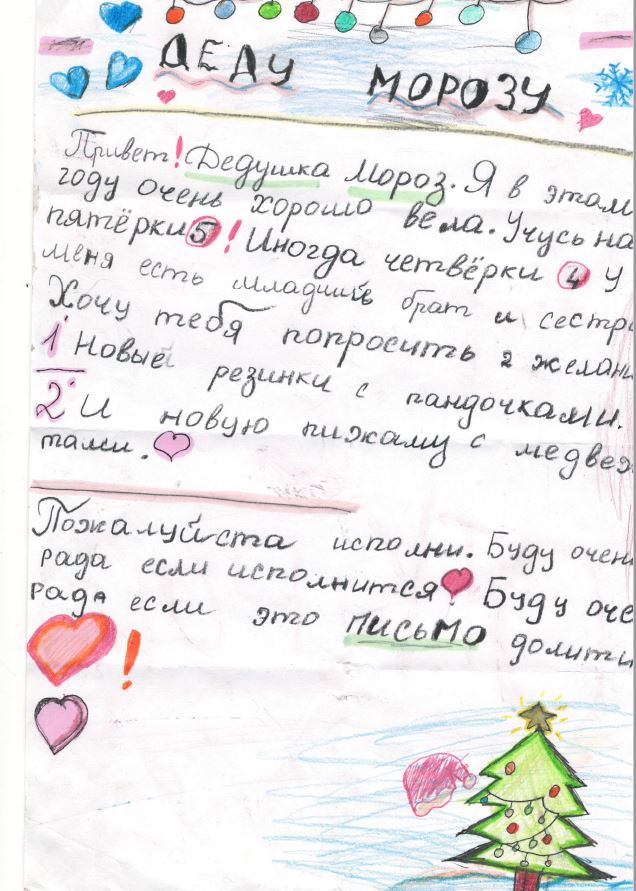 ДЕДУ МОРОЗУ
Привет! Дедушка Мороз. Я в этом
году очень хорошо вела. Учусь на
пятёрки 5! Иногда четвёрки 4 У
меня есть младший брат и сестр
Хочу тебя попросить 2 желани
1 Новые резинки с пандочками.
2 И новую пижаму с медвеж
тами.
Пожалуйста исполни. Буду очен
рада если исполнится Буду оче
рада если это письмо долити
!